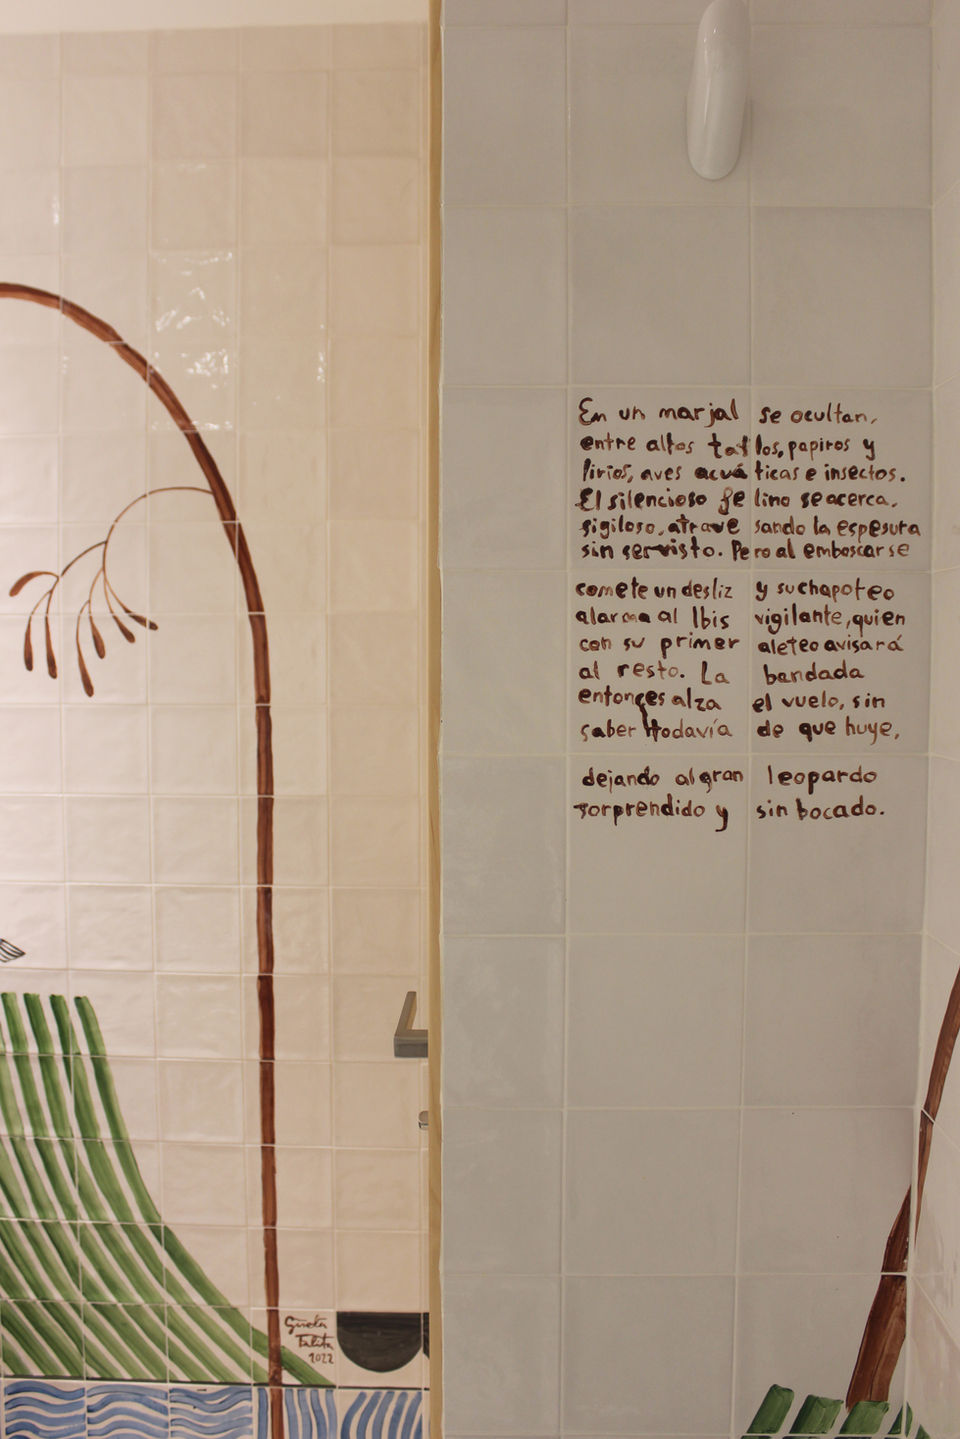 En un marjal se ocultan,
entre altos tallos, papiros y
lirios, aves acuáticas e insectos.
El silencioso felino se acerca,
sigiloso, atravesando la espesura
sin ser visto. Pero al emboscarse
comete un desliz y su chapoteo
alarma al Ibis vigilante, quien
con su primer aleteo avisará
al resto. La bandada
entonces alza el vuelo, sin
saber todavía de que huye,
dejando al gran leopardo
sorprendido y sin bocado.
2022